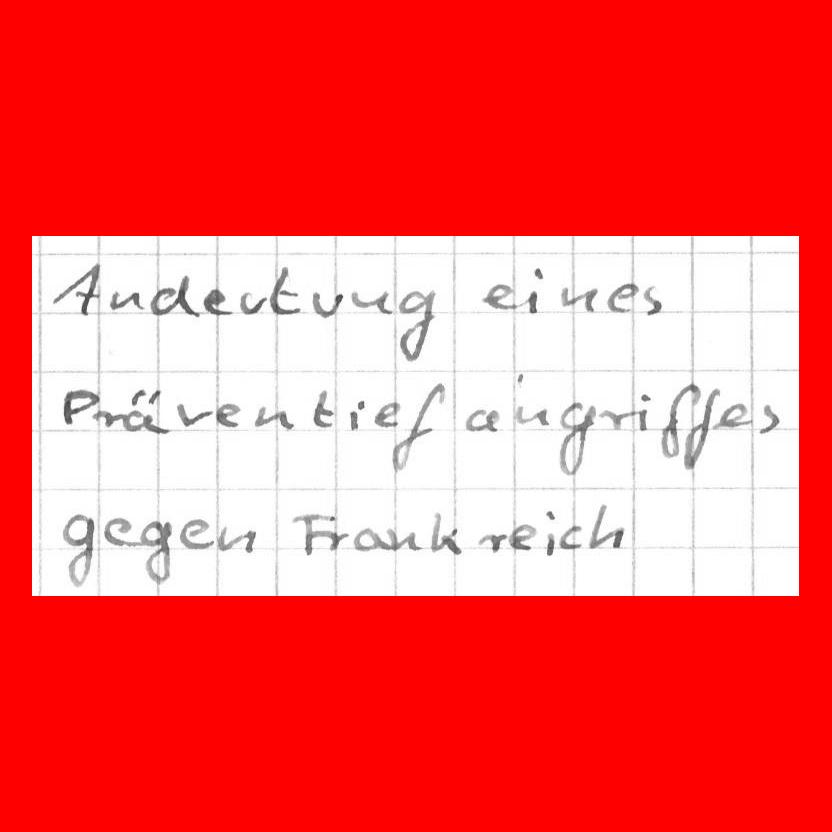 Andeutung eines
Präventief angriffes
gegen Frankreich